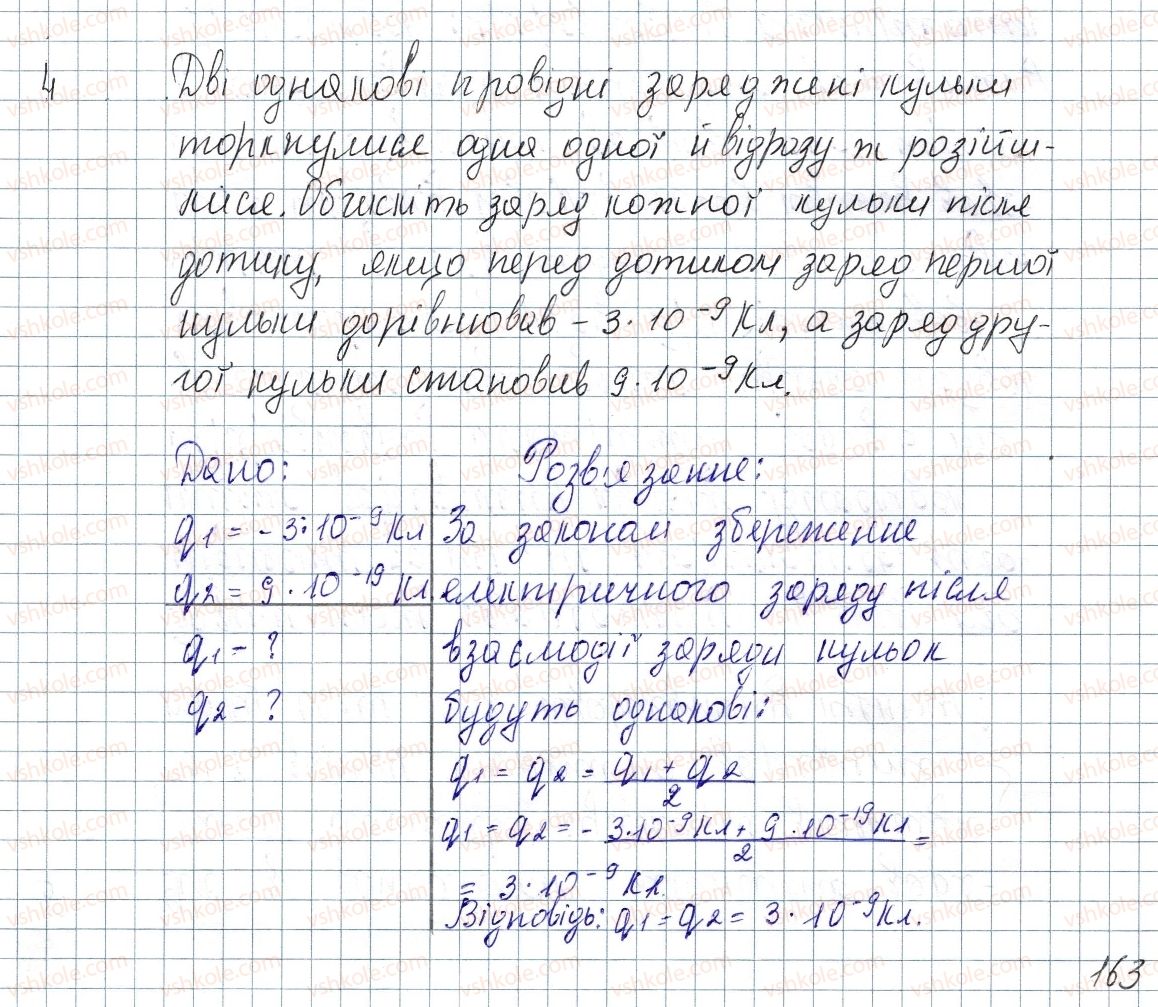 4 Дві однакові провідні заряджені кульки
торкнулися одна одної й відразу ж розійш-
лися. Обчисліть заряд кожної кульки після
дотику, якщо перед дотиком заряд першої
кульки дорівнював -3·10⁻⁹ Кл, а заряд дру-
гої кульки становив 9·10⁻⁹ Кл.
Дано:
q₁ = -3·10⁻⁹ Кл
q₂ = 9·10⁻¹⁹ Кл
q₁ - ?
q₂ - ?
Розв'язання:
За законом збереження
електричного заряду після
взаємодії заряди кульок
будуть однакові:
q₁ = q₂ = (q₁ + q₂)/2
q₁ = q₂ = - (3·10⁻⁹ Кл + 9·10⁻¹⁹ Кл)/2 =
= 3·10⁻⁹ Кл.
Відповідь: q₁ = q₂ = 3·10⁻⁹ Кл.
163
vshkole.com